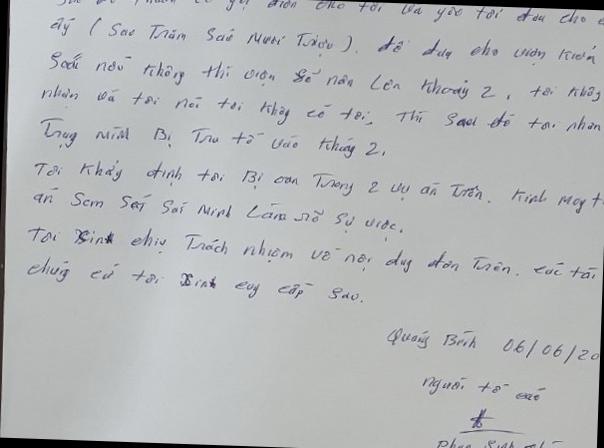 gọi điện cho tôi và yêu tôi đưa cho
ấy ( Sáu Trăm Sáu Mươi Triệu ). để đưa cho viện Kiểm
Sát nếu không thì viện Sẽ nân Lên Khoảng 2, tôi không
nhận và tôi nói tôi không có tội, Thì Sau đó tôi nhận
Trụng mình Bị Tru tố vào Khảng 2,
Tôi Khảng định tôi Bị oan Trong 2 vụ án Trên. Kính mong
án Sem Sét Sát minh Làm rõ Sự việc.
Tôi xinh chịu Trách nhiệm về nội dug đơn Trên. các tài
chứg cứ tôi xinh cug cấp Sau.
Quảng Bình 06/06/20
người tố cáo
Phan